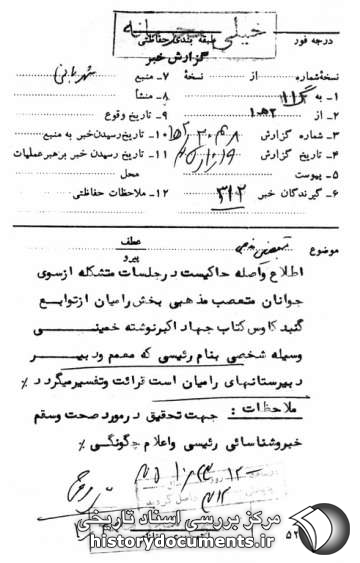 خیلی محرمانه
درجه فور
طبقه بندی حفاظتی
گزارش خبر
نسخه شماره از نسخه
۷- منبع شهربانی
۱- به ۳۱۲
۸- منشأ
۲- از
۹- تاریخ وقوع
۳- شماره گزارش
۱۰- تاریخ رسیدن خبر به منبع
۴- تاریخ گزارش
۱۱- تاریخ رسیدن خبر برهبر عملیات
۵- پیوست
محل
۶- گیرندگان خبر ۳۱۲
۱۲- ملاحظات حفاظتی
موضوع
عطف
پیرو
اطلاع واصله حاکیست در جلسات متشکله ازسوی
جوانان متعصب مذهبی بخش رامیان ازتوابع
گنبد کاوس کتاب جهاد اکبرنوشته خمینی
وسیله شخصی بنام رئیسی که معمم ودبیر
دبیرستانهای رامیان است قرائت وتفسیرمیگردد ٪
ملاحظات : جهت تحقیق درمورد صحت وسقم
خبروشناسائی رئیسی واعلام چگونگی ٪
مرکز بررسی اسناد تاریخی
historydocuments.ir